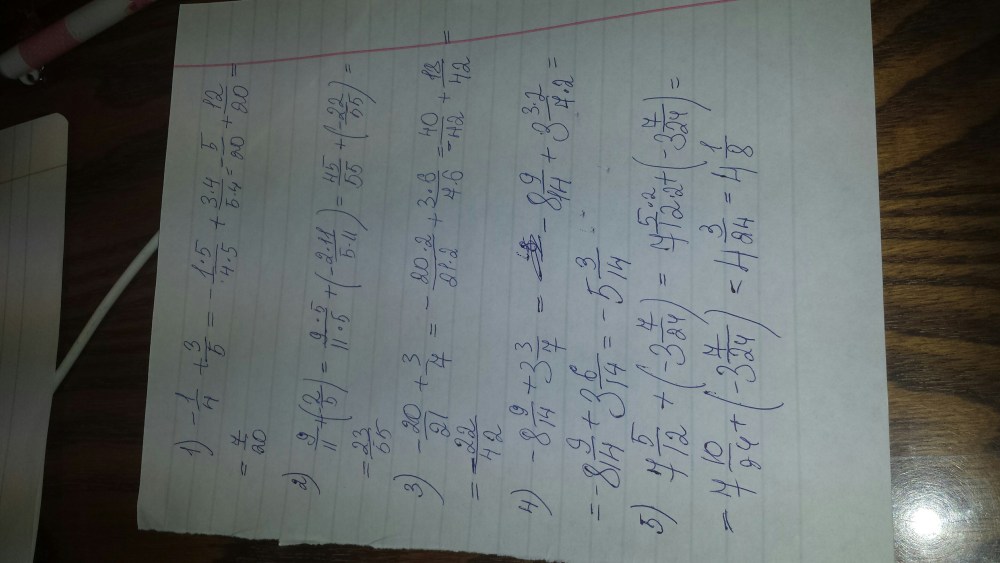 1) -1/4 + 3/5 = - 1·5/4·5 + 3·4/5·4 = - 5/20 + 12/20 =
= 7/20
2) 9/11 + (-2/5) = 9·5/11·5 + (-2·11/5·11) = 45/55 + (-22/55) =
= 23/55
3) - 20/21 + 3/7 = - 20·2/21·2 + 3·6/7·6 = - 40/42 + 18/42 =
= - 22/42
4) -8 9/14 + 3 3/7 = -8 9/14 + 3 3·2/7·2 =
= -8 9/14 + 3 6/14 = -5 3/14
5) 7 5/12 + (-3 7/24) = 7 5·2/12·2 + (-3 7/24) =
= 7 10/24 + (-3 7/24) = 4 3/24 = 4 1/8